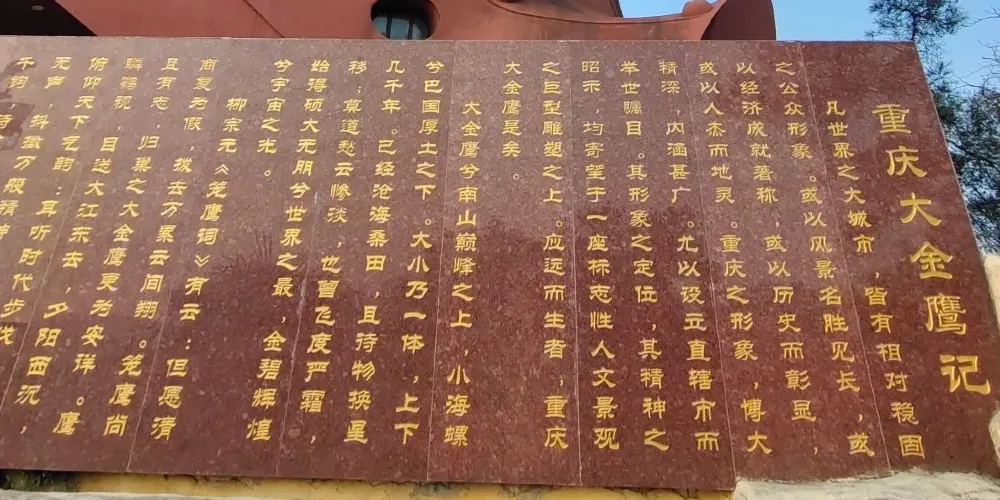 重庆大金鹰记
凡世界之大城市，皆有相对稳固
之公众形象。或以风景名胜见长，或
以经济成就著称，或以历史而彰显，
或以人杰而地灵。重庆之形象，博大
精深，内涵甚广。尤以设立直辖市而
举世瞩目。其形象之定位，其精神之
昭示，均寄望于一座标志性人文景观
之巨型雕塑之上。应远而生者，重庆
大金鹰是矣。
大金鹰兮南山巅峰之上，小海螺
兮巴国厚土之下。大小乃一体，上下
几千年。已经沧海桑田，且待物换星
移；莫道愁云惨淡，也曾飞度严霜，
始得硕大无朋兮世界之最，金碧辉煌
兮宇宙之光。
柳宗元《笼鹰词》有云：但愿清
商复为假，拨去万累云间翔。笼鹰尚
且有志，归巢之大金鹰更为安详。鹰
瞵鹗视，目送大江东去，夕阳西沉，
俯仰天下气韵；耳听时代步伐
无声，抖擞万般精神
千钧